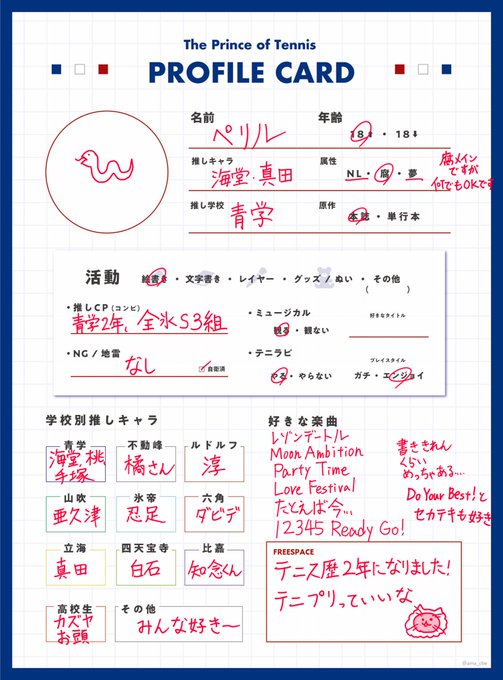 The Prince of Tennis
PROFILE CARD
名前 ペリル
年齢 18⬆・18⬇
推しキャラ 海堂・真田
属性 NL・腐・夢
腐メイン
ですが
何でもOKです
推し学校 青学
原作 本誌・単行本
活動 絵書き・文字書き・レイヤー・グッズ/ぬい・その他
( )
・推しCP(コンビ)
青学2年、全氷S3組
・ミュージカル
観る・観ない
好きなタイトル
・NG/地雷
なし
自衛済
・テニラビ
やる・やらない
プレイスタイル
ガチ・エンジョイ
学校別推しキャラ
青学
海堂、桃
手塚
不動峰
橘さん
ルドルフ
淳
山吹
亜久津
氷帝
忍足
六角
ダビデ
立海
真田
四天宝寺
白石
比嘉
知念くん
高校生
カズヤ
お頭
その他
みんな好き〜
好きな楽曲
レゾンデートル
Moon Ambition
Party Time
Love Festival
たとえば今…
12345 Ready Go!
書ききれん
くらい
めっちゃある…
Do Your Best!と
セカテキも好き
FREESPACE
テニス歴2年になりました!
テニプリっていいな
@ama_cbe